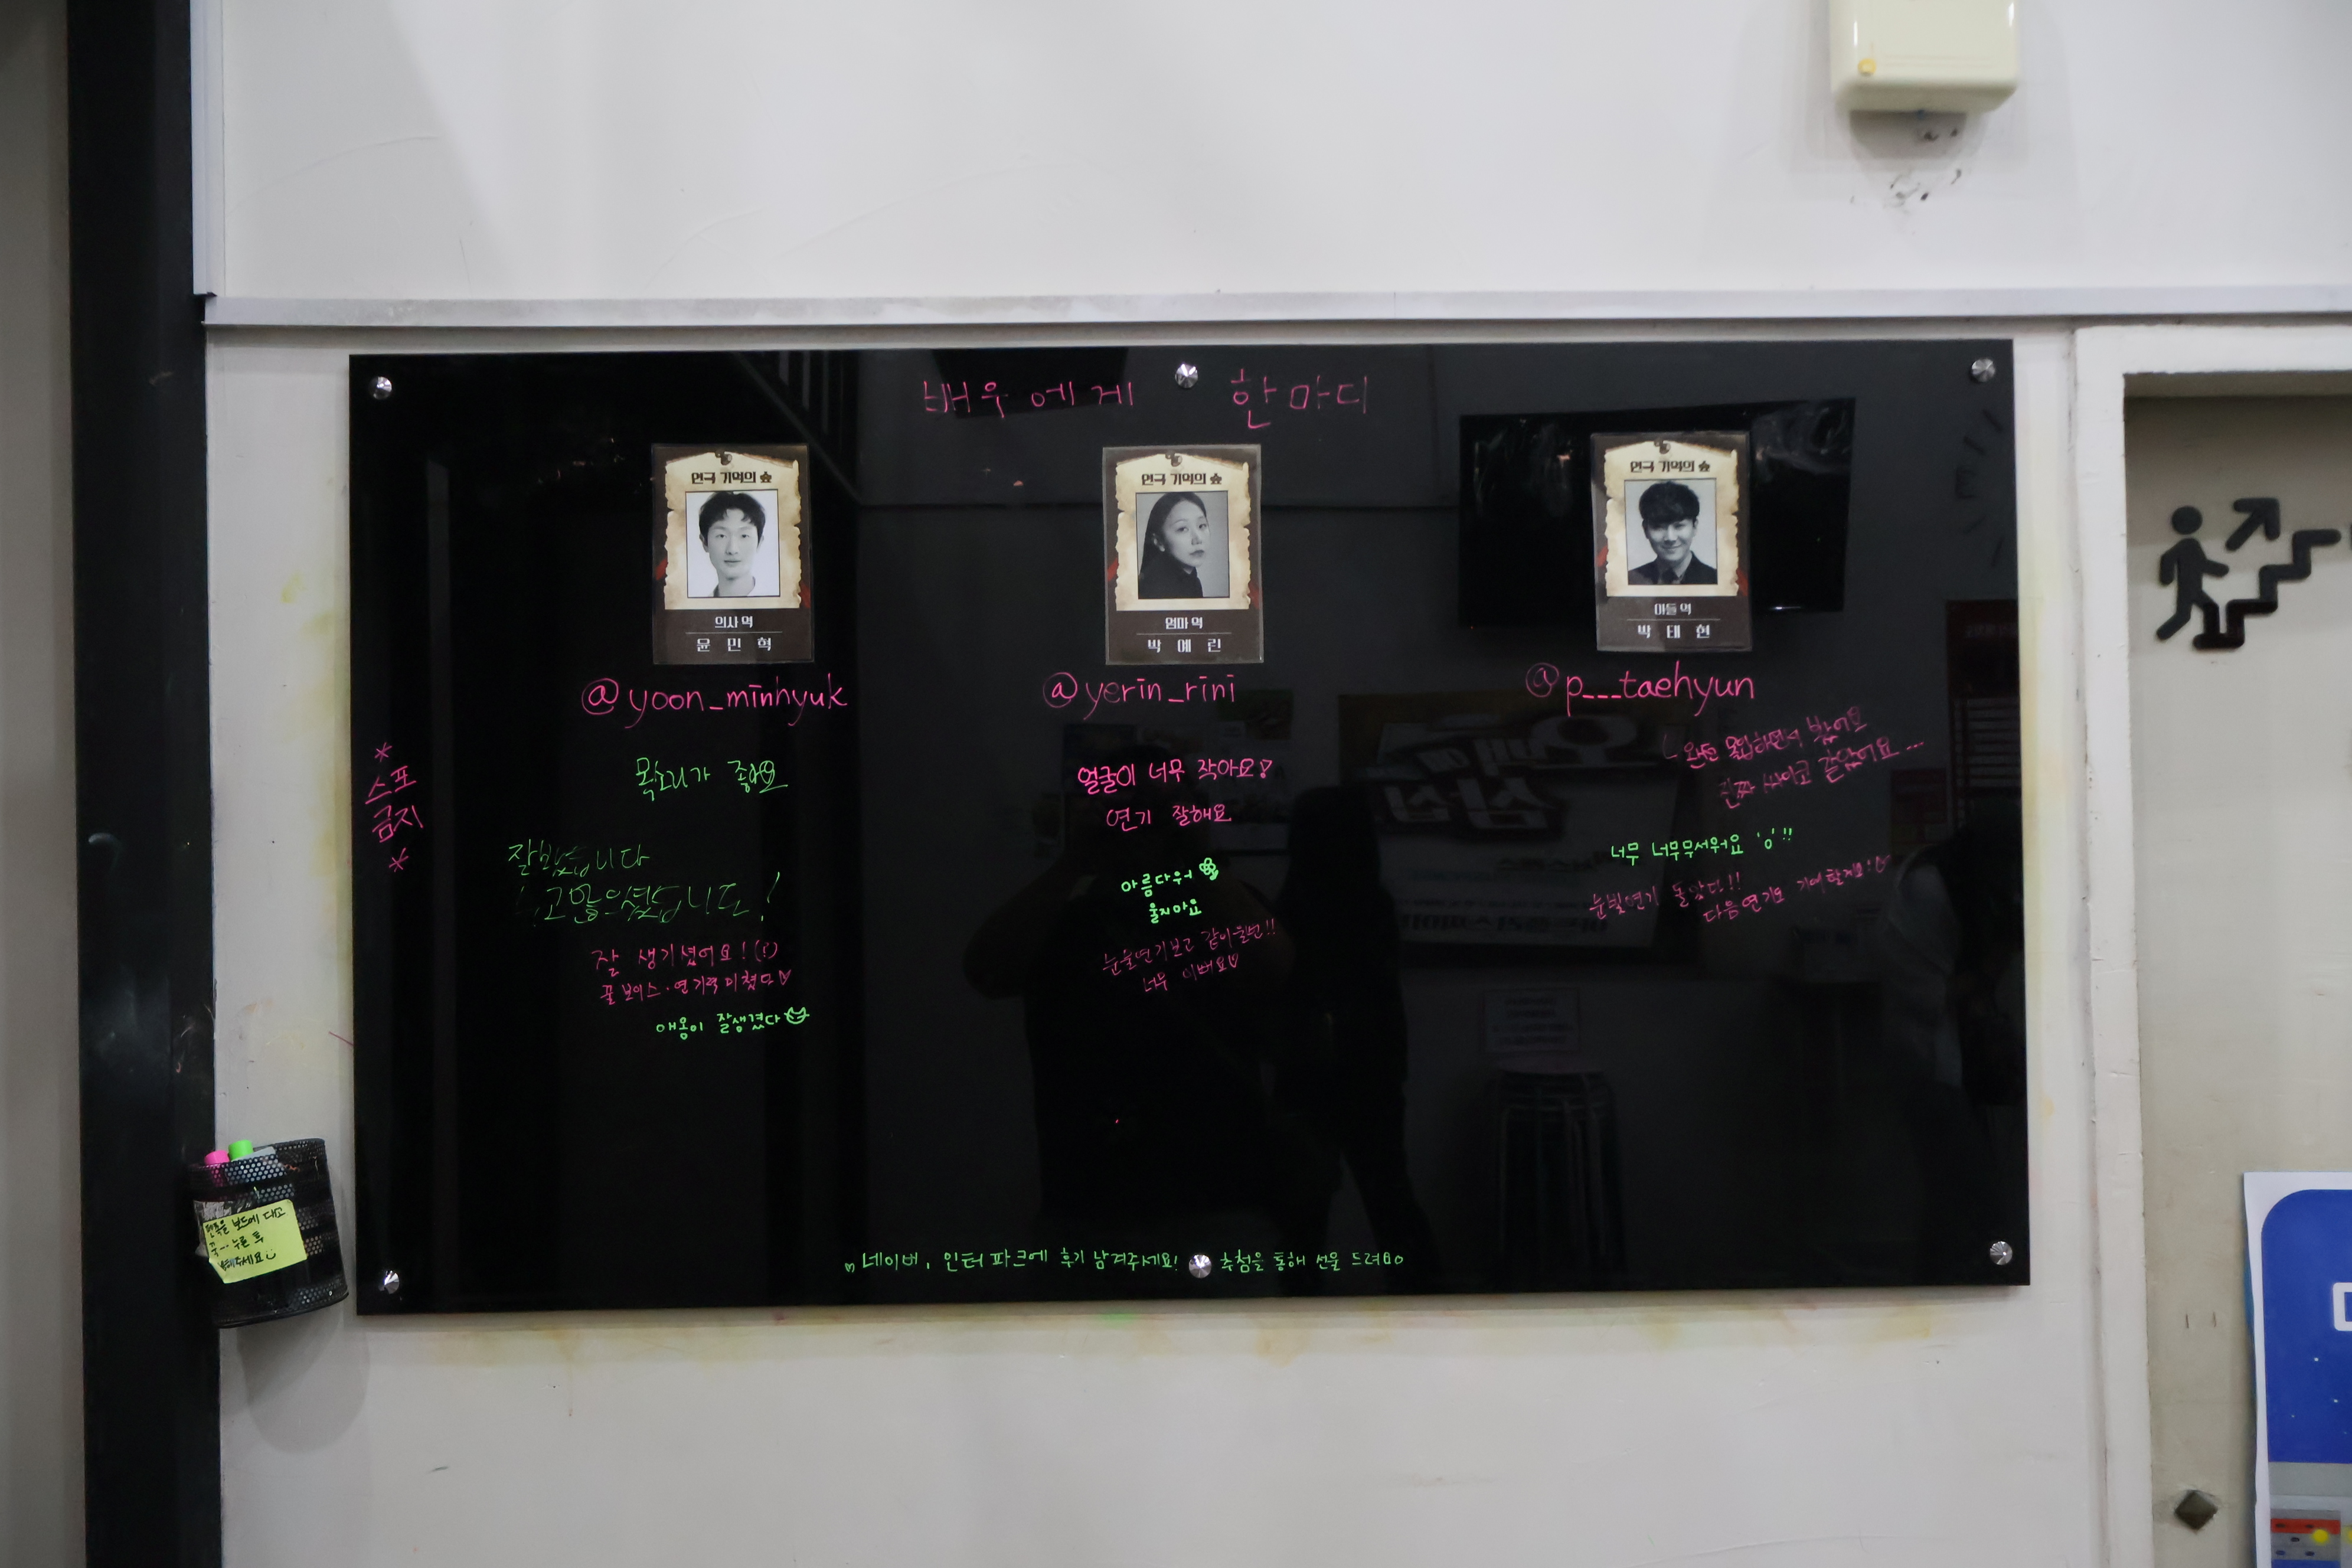 배우에게 한마디
연극 기억의 숲
의사 역
윤민혁
@yoon_minhyuk
목소리가 좋아요
잘봤습니다
고많으셨습니다!
잘 생기셨어요! (!)
꿀 보이스·연기력 미쳤다♡
애옹이 잘생겼다
연극 기억의 숲
엄마 역
박예린
@yerin_rini
얼굴이 너무 작아요!
연기 잘해요
아름다워
울지마요
눈물연기보고 같이울번!!
너무 이뻐요♡
연극 기억의 숲
아들 역
박태현
@p___taehyun
완전 몰입하면서 봤어요
진짜 싸이코 같았어요...
너무 너무무서워요 'o'!!
눈빛연기 돌았다!!
다음연기도 기대할게요!♡
*
스포
금지
*
네이버, 인터파크에 후기 남겨주세요! 추첨을 통해 선물 드려요
보드에 대고
꾹... 누른 후
써주세요